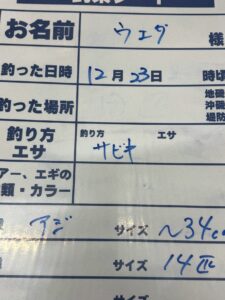 お名前 ウエダ 様
釣った日時 12月23日 時頃
釣った場所 地磯 沖磯 堤防
釣り方 エサ 釣り方 サビキ エサ
アー、エギの 類・カラー
アジ サイズ ~34c
サイズ 14匹